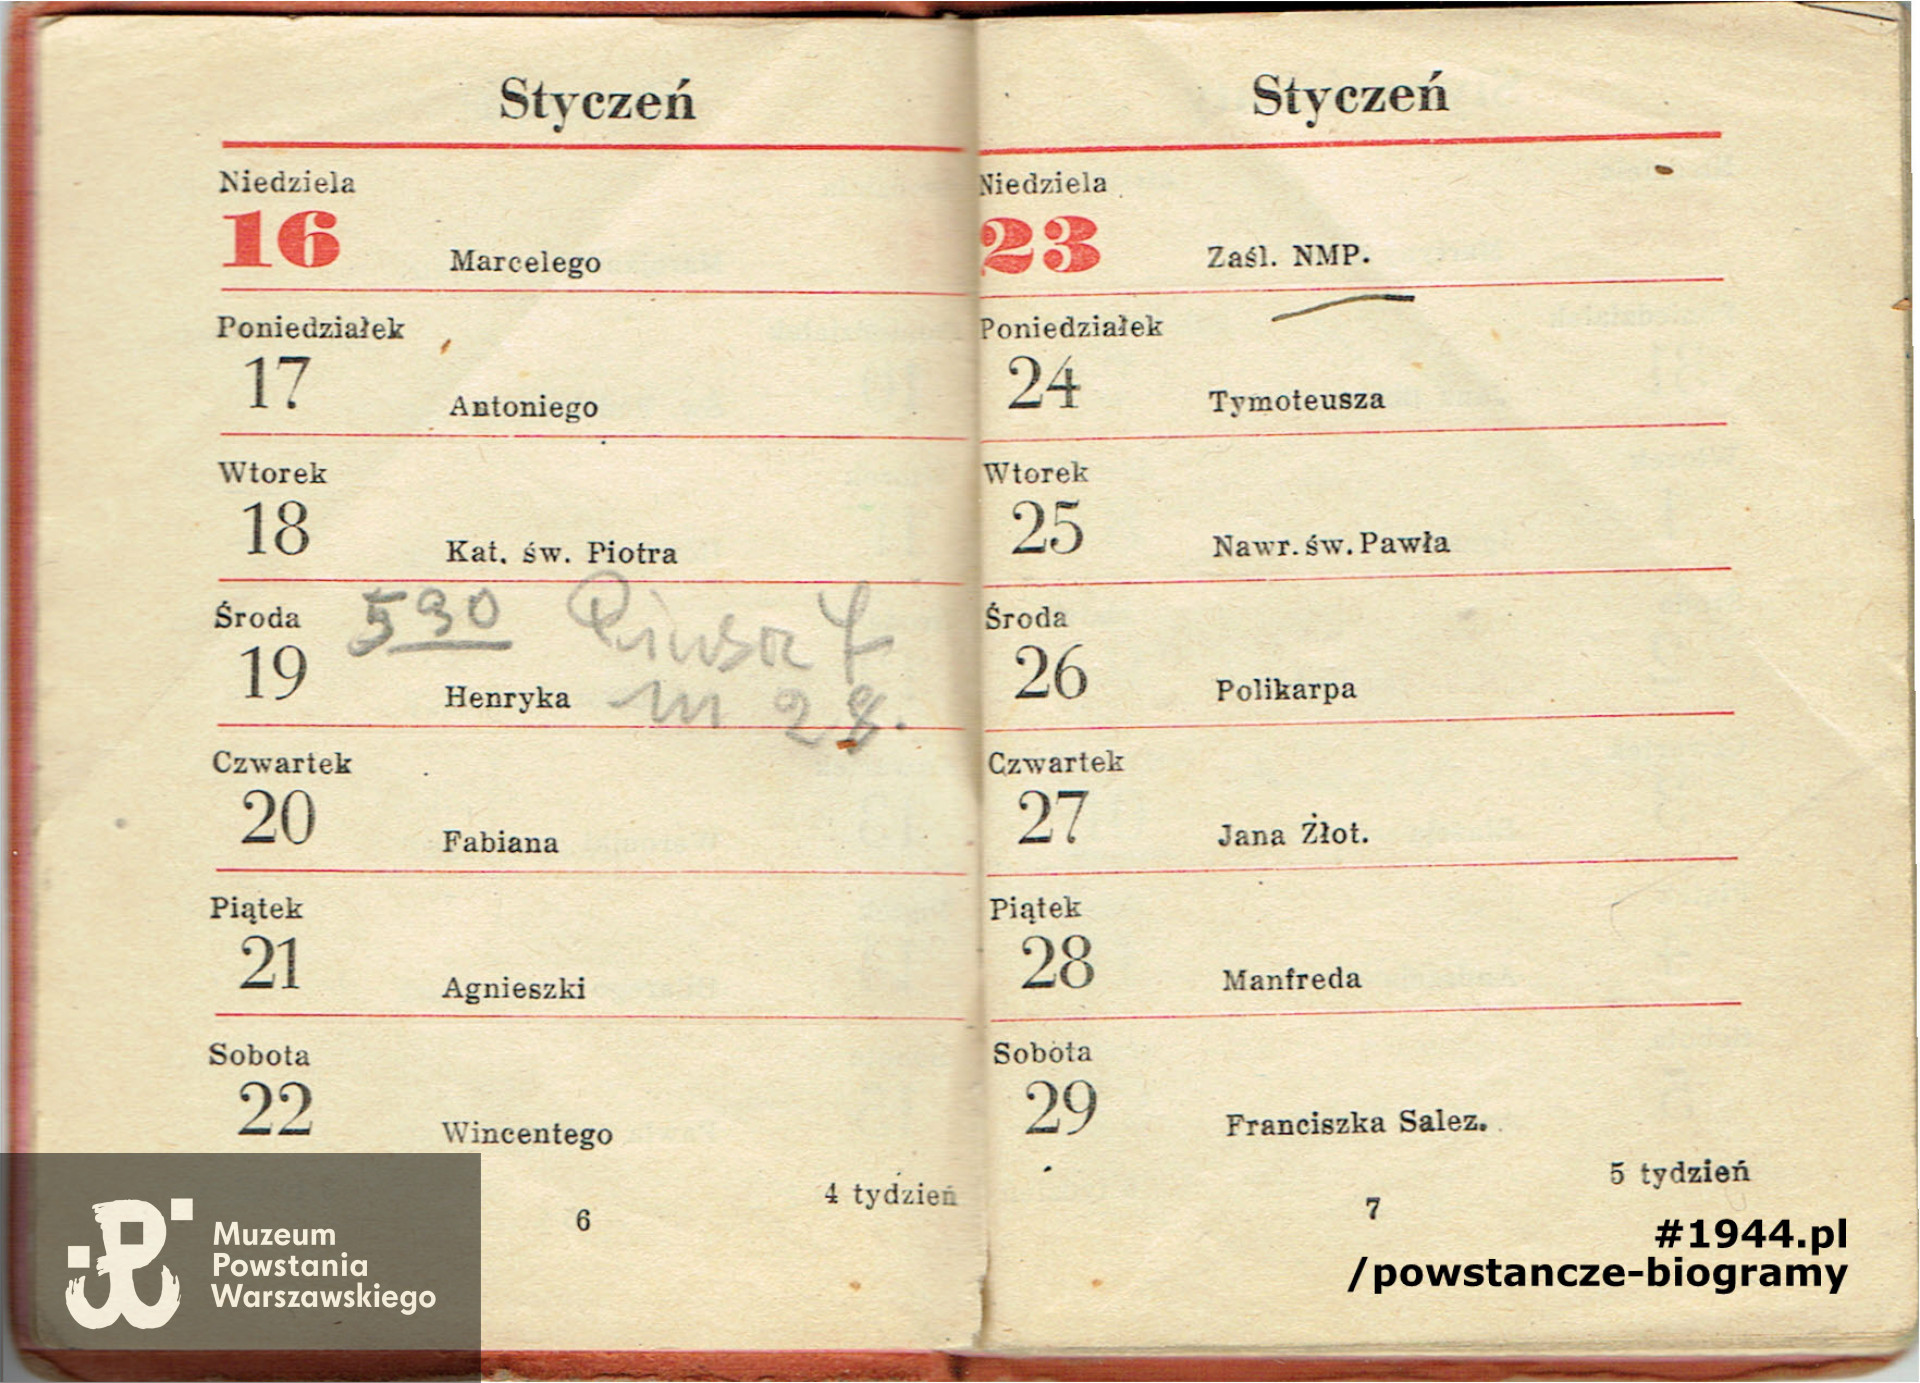 Styczeń
Niedziela
16 Marcelego
Poniedziałek
17 Antoniego
Wtorek
18 Kat. św. Piotra
Środa 530 Piusa
19 Henryka m 28.
Czwartek
20 Fabiana
Piątek
21 Agnieszki
Sobota
22 Wincentego
4 tydzień
6
Styczeń
Niedziela
23 Zaśl. NMP.
Poniedziałek
24 Tymoteusza
Wtorek
25 Nawr. św. Pawła
Środa
26 Polikarpa
Czwartek
27 Jana Żłot.
Piątek
28 Manfreda
Sobota
29 Franciszka Salez.
5 tydzień
7
Muzeum
Powstania
Warszawskiego
#1944.pl
/powstancze-biogramy